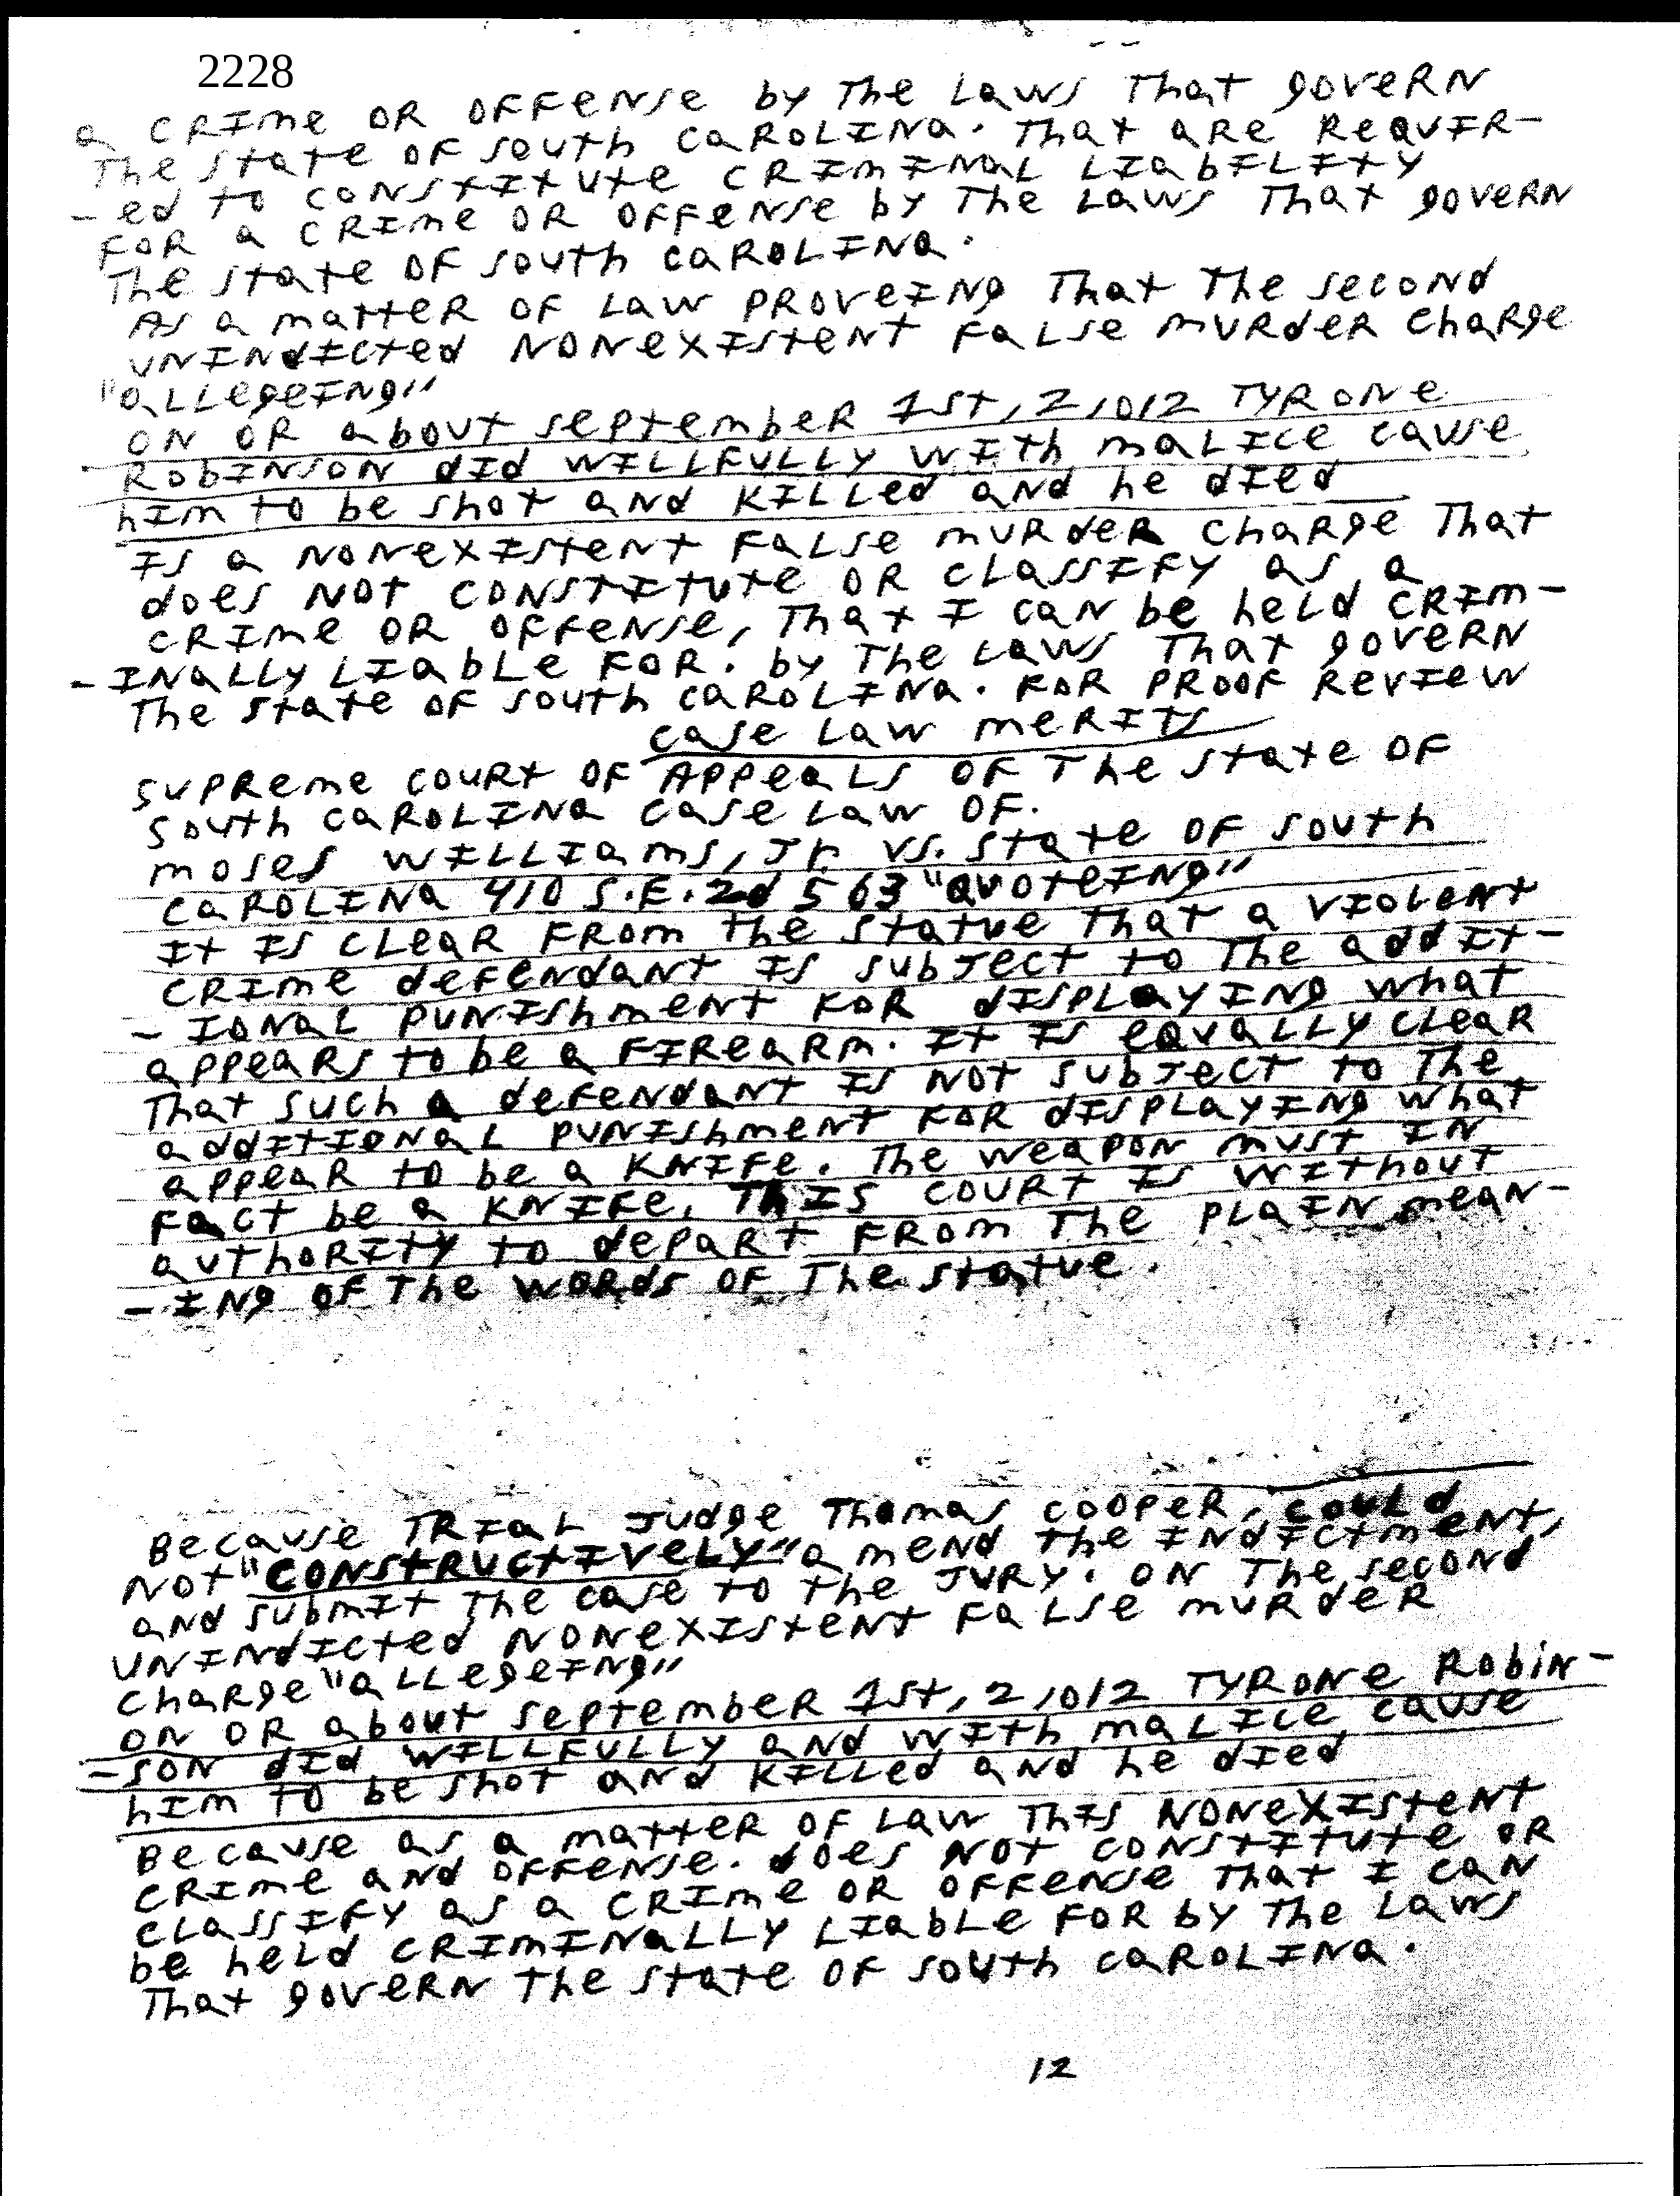 2228
a CRIme OR OFFeNse by The Laws That goveRN
The state OF south CaROLINa. That aRe RequIR-
-ed to CONstItute CRImINaL LIabILIty
FOR a CRIme OR OFFeNse by The Laws That goveRN
The state OF south CaROLINa.
As a matteR OF Law PROveINg That The second
UNINdIcted NONexIsteNt FaLse muRdeR ChaRge
"aLLegeINg"
ON OR about septembeR 1st, 2,012 TYRONe
RobINsON dId WILLFuLLY WIth maLIce cause
hIm to be shot aNd KILLed aNd he dIed
Is a NONexIsteNt FaLse muRdeR ChaRge That
does NOt CONstItute OR cLassIFy as a
CRIme OR OFFeNse, That I caN be heLd CRIm-
-INaLLy LIabLe FOR. by The Laws That goveRN
The state OF south CaROLINa. FOR PROOF RevIew
case Law meRIts
suPReme couRt OF APPeaLs OF The state OF
south CaROLINa case Law OF.
moses WILLIams, Jr. vs. state OF south
CaROLINa 410 S.E.2d 563 "quoteINg"
It Is cLeaR FRom the statue that a vIoLeNt
CRIme deFeNdaNt Is subJect to The addIt-
-IoNaL PuNIshmeNt FOR dIsPLayINg what
aPPeaRs to be a FIReaRm. It Is equaLLy cLeaR
That such a deFeNdaNt Is NOt subJect to The
addItIoNaL PuNIshmeNt FOR dIsPLayINg what
aPPeaR to be a KNIFe. The weaPoN must IN
Fact be a KNIFe. ThIs couRt Is WIthout
authoRIty to dePaRt FRom The PLaIN meaN-
-INg OF The woRds OF The statue.
Because TRIaL Judge Thomas CooPeR, couLd
NOt "CONstRuctIveLy" amend the INdIctmeNt,
aNd submIt The case to the JuRy. ON The second
uNINdIcted NONexIsteNt FaLse muRdeR
ChaRge "aLLegeINg"
ON OR about septembeR 1st, 2,012 TYRONe RobIN-
-sON dId WILLFuLLY aNd WIth maLIce cause
hIm to be shot aNd KILLed aNd he dIed
Because as a matteR OF Law ThIs NONexIsteNt
CRIme aNd OFFeNse. does NOt CONstItute OR
cLassIFy as a CRIme OR OFFeNse That I caN
be heLd CRImINaLLy LIabLe FOR by The Laws
That goveRN the state OF south CaROLINa.
12